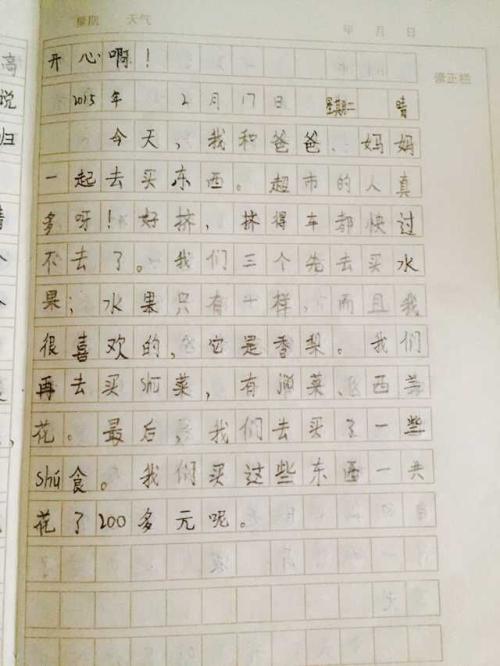 星期 天气 年 月 日
开心啊！
2015年 2月17日 星期二 晴
今天，我和爸爸、妈妈
一起去买东西。超市的人真
多呀！好挤，挤得车都快过
不去了。我们三个先去买水
果；水果只有一样，而且我
很喜欢的，它是香梨。我们
再去买shū菜，有菜、西兰
花。最后，我们去买了一些
shú食。我们买这些东西一共
花了200多元呢。
订正栏
高
说
归